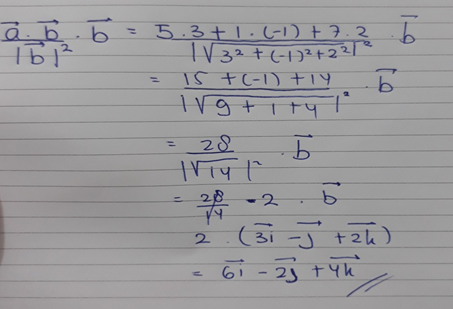 a⃗ . b⃗ / |b⃗|² . b⃗ = 5.3 + 1.(-1) + 7.2 / |√3² + (-1)² + 2²|² . b⃗
= 15 + (-1) + 14 / |√9 + 1 + 4|² . b⃗
= 28 / |√14|² . b⃗
= 28/14 - 2 . b⃗
2 . (3i⃗ - j⃗ + 2k⃗)
= 6i⃗ - 2j⃗ + 4k⃗